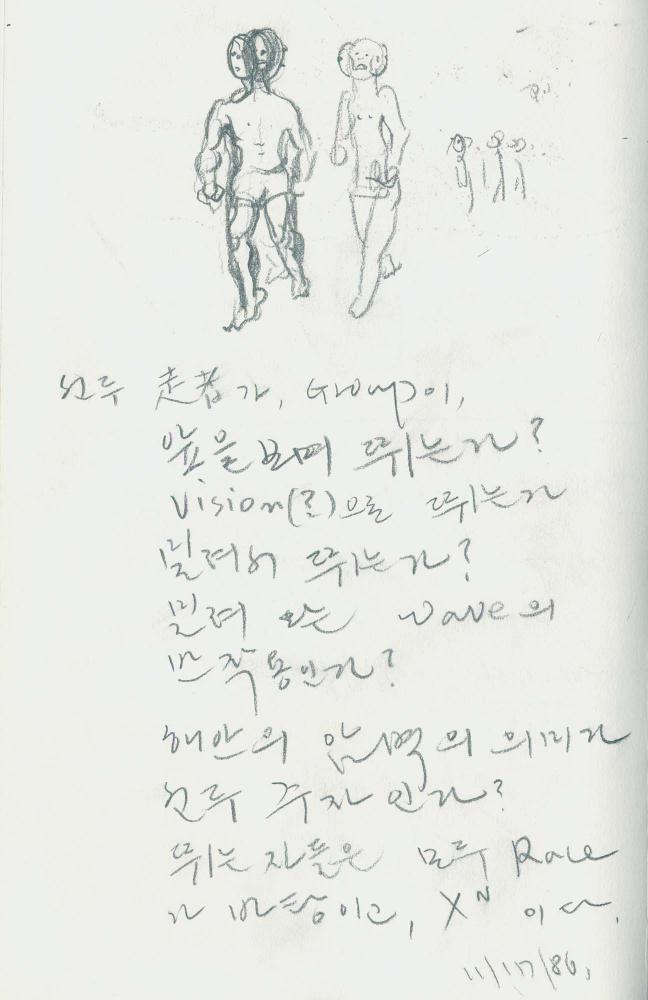 선두 走者가, Group이,
앞을 보며 뛰는가?
Vision(?)으로 뛰는가
밀려서 뛰는가?
밀려 오는 wave의
반작용인가?
해안의 암벽의 의미가
선두 주자 인가?
뛰는 자들은 모두 Race
가 바탕이고, X^N 이다.
11/17/86,